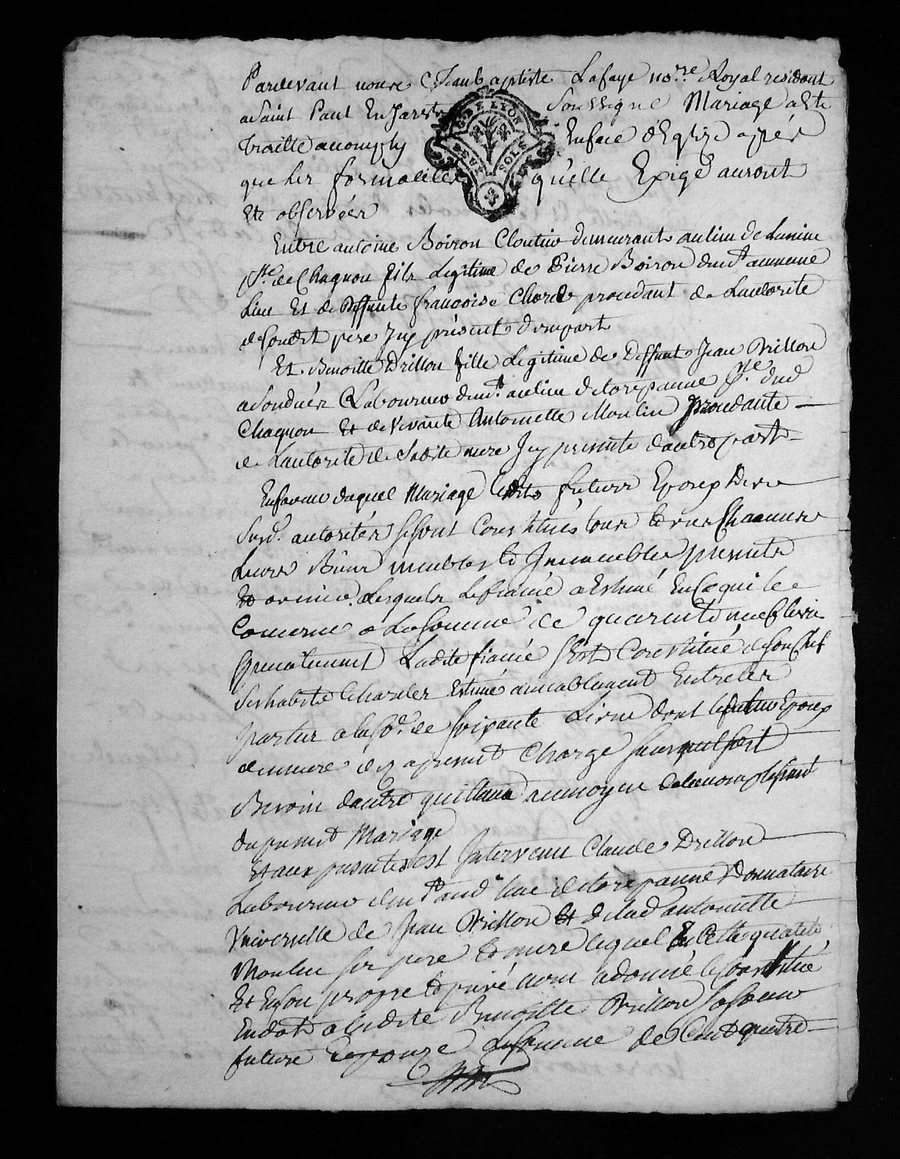 Pardevant notre Jeanbaptiste Lafaye no.re Royal residant
a Saint Paul En Jarest Soussigné Mariage a Eté
G. DE LYON
DEUX SOLS
Traitté accomply En face d'Eglize apprés
que les formalités qu'elle Exige auront
Eté observéés
Entre antoine Boiron Cloutier demeurant au lieu de
p.sse de Chagnon fils Legitime de Pierre Boiron dud.t
Lieu Et de deffunte francoise Chord procedant de Lautorité
de sondit pere Jcy présent d'une part
Et Benoitte Drillon fille Legitime de deffunt Jean Drillon
Laboureur dem.t au lieu de p.sse dud
Chagnon Et de vivante Antoinette Moulin procédante
de Lautorité de Sadite mere Jcy presente d'autre part
En faveur duquel Mariage lesdits futurs Epoux de
Susd. autorités se sont Constitués tous Chacun
Leurs Biens meubles et Immeubles presents
Et avenir Lesquels Le fiancé a Estimé En ce qui le
Concerne a La somme de quarante neuf livres
Et Ladite fiancée s'est Constitué de son Chef
Ses habits Estimé amiablement Entre les
parties a la so. de soixante Livres dont le futur Epoux
demeure des a present Chargé sans qu'il soit
Besoin d'autre quittance au moyen de
du present Mariage
Et aux présentes est Intervenu Claude Drillon
Laboureur dem.t aud. lieu de Donnataire
Universelle de Jean Drillon Et de lad. antoinette
Moulin ses pere Et mere lequel En cette qualité
Et En son propre Et privé nom a donné et Constitué
En dot a ladite Benoitte Drillon sa soeur
future Epouze La somme de Cent quatre